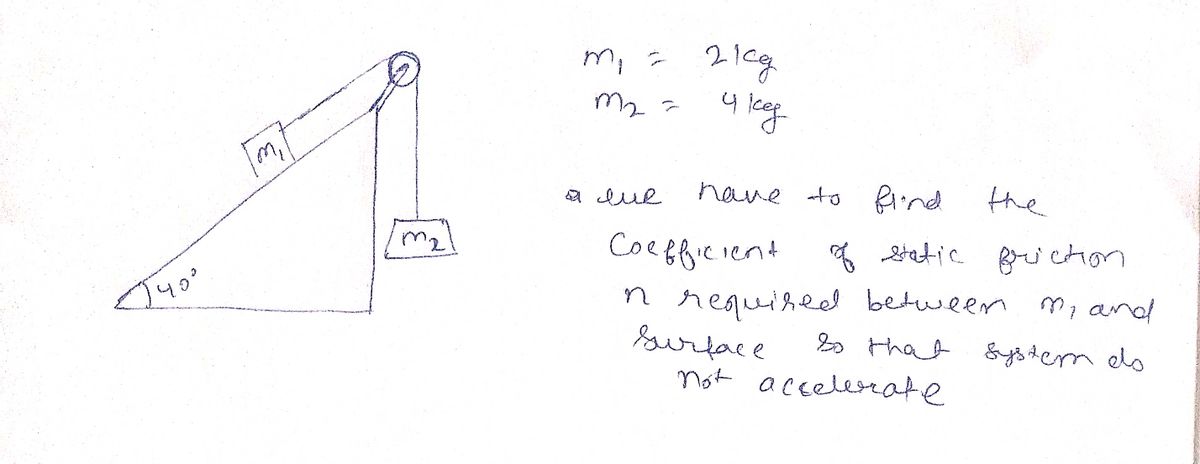 m₁ = 2 kg
m₂ = 4 kg
m₁
m₂
40°
we have to find the
Coefficient of static friction
n required between m₁ and
surface so that system do
not accelerate